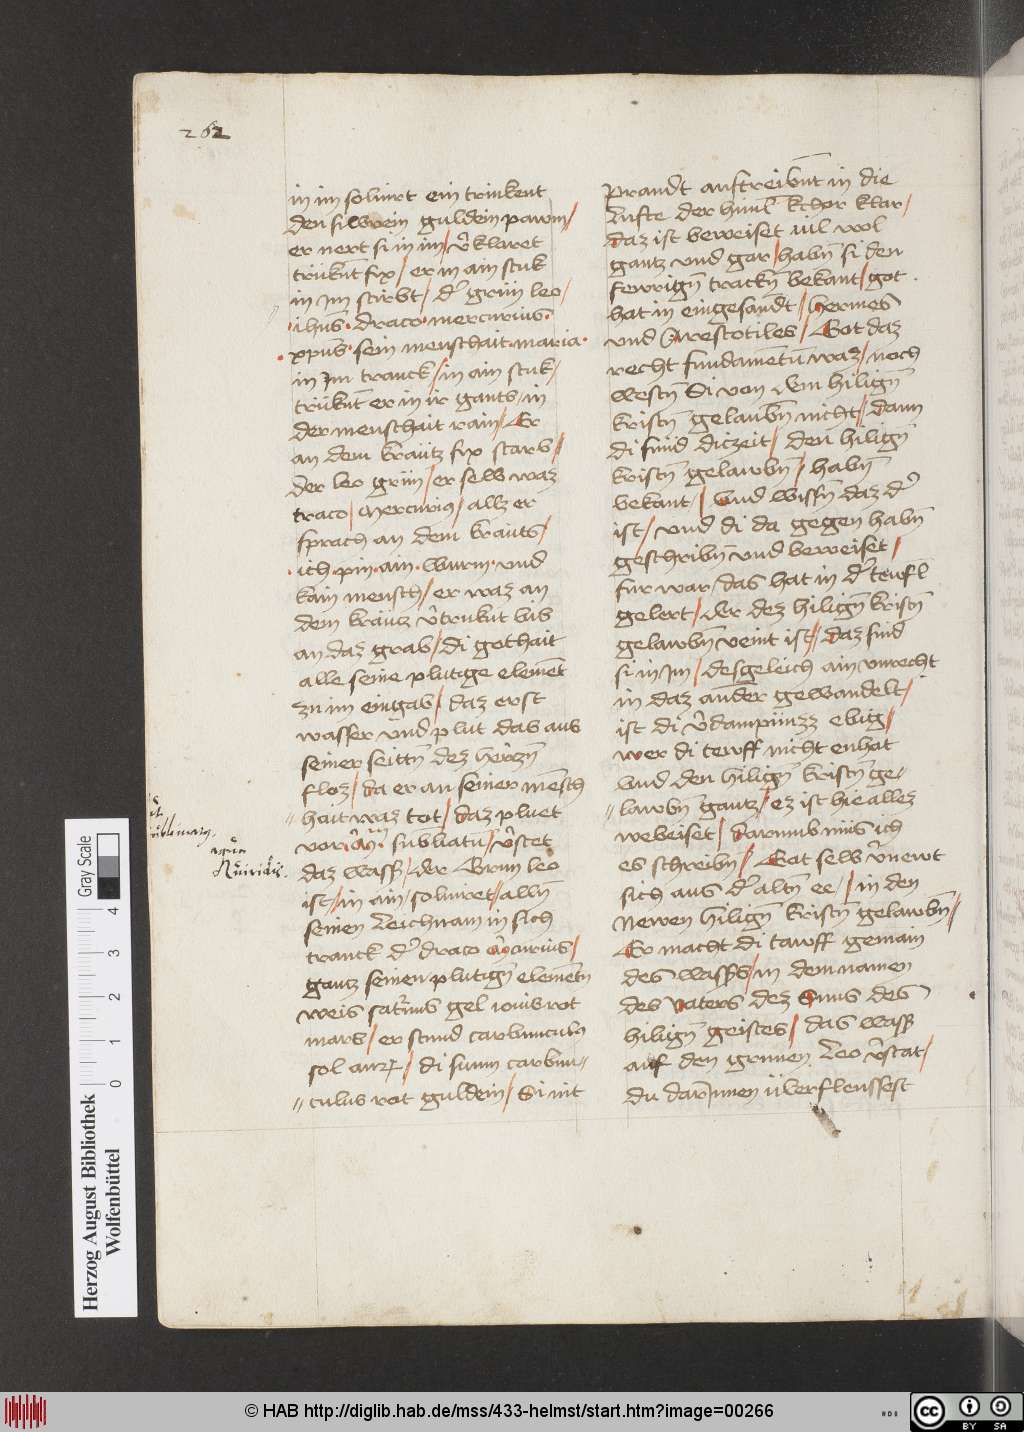 262
in im soluirt ein trinkent
den silwrein guldein pawm /
er nert si in im / v̄klaret
trükn̄t fix / er in ain stuk
in Im stirbt / d' grün leo /
ihūs · draco · mercurius ·
xp̄us · sein menschait · maria ·
in Im tranck / in ain stuk /
trükn̄t er in ir gants / in
der menschait rain / Er
an dem kraütz fix starb /
der leo grün / er selb waz
traco / Mercuriꝯ / allz er
sprach an dem kraüts /
· ich · pin · ain · wurm · vnd
kain mensch / er waz an
dem kraütz v̄truknt bis
an daz grab / di gothait
alle seine plutige elemēt
zu im eingab / daz erst
wasser vnd plut das aus
seiner seittn̄ dez herczn̄
floz / da er an seiner mēsch
hait waz tot / daz pluet
sublimatū / v̄stet
daz wass' / der Grün leo
ist / in ain / soluiret / alln̄
seinen Leichnam in sich
tranck d' draco m̄curius /
gantz seinen plutign̄ elemētn
weis saturnus gel iouis rot
mars / er stund carbunculus
sol aur / di sunn carbun //
// culus rot guldein / Si mit
prandt austreibn̄t in die
Lufte der himl kchor klar /
daz ist beweiset uil wol
gantz vnd gar / habn̄ si den
fewrign̄ trackn̄ bekant / got
hat in eingesandt / Hermes
vnd Arestotiles / Got daz
recht fundamētū waz / noch
westn̄ Si von dem hilign̄
kristn̄ gelaubn̄ nicht / dann
di sund diczeit / den hilign̄
kristn̄ gelawbn̄ / habn̄
bekant / Vnd wissn̄ daz d'
ist / vnd di da gegen habn̄
geschribn̄ vnd beweiset /
fur war / das hat in d' teufl̄
gelert / der dez hilign̄ kristn̄
gelawbn̄ veint ist / daz sind
si in Im / desgeleich ain vnrecht
in daz ander gewandelt /
ist di v̄dampnuzz ebig /
wer di tewff nicht enhat
Vnd den hilign̄ kristn̄ ge //
// lawbn̄ gantz / ez ist hie allez
webeiset / darumb mus ich
es schreibn̄ / Gat selb v̄newt
sich aus d' altn̄ ee / in den
Newen hilign̄ kristn̄ gelawbn̄ /
Er macht di tawff gemain
des wass's / in dem namen
des vaters dez Suns des
hilign̄ geistes / das wass'
auf den grunen Leo v̄stat /
du darInnen überflenssest
aqua
Rviridis.
Herzog August Bibliothek
Wolfenbüttel
Gray Scale
0 1 2 3 4
© HAB http://diglib.hab.de/mss/433-helmst/start.htm?image=00266
cc BY SA